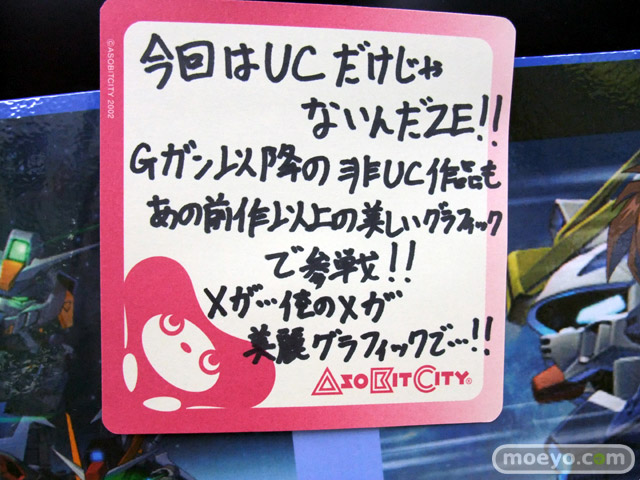 ©ASOBITCITY 2002
今回はUCだけじゃ
ないんだZE!!
Gガン以降の非UC作品も
あの前作以上の美しいグラフィック
で参戦!!
メガ…俺のメガ
美麗グラフィックで…!!
ASOBITCITY®
moeyo.com